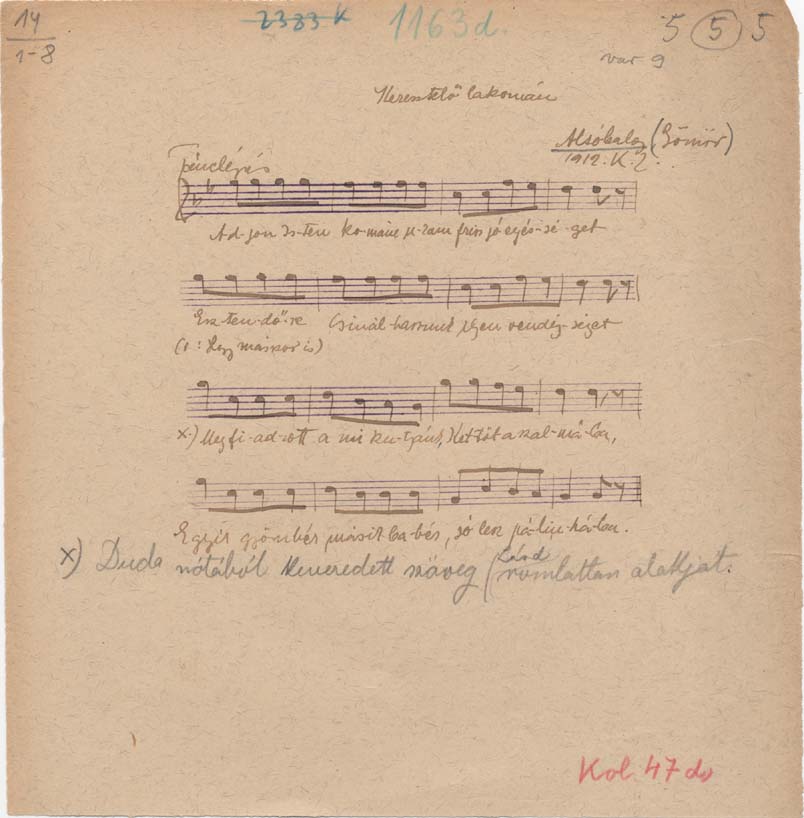 14
1-8
2383 K
1163d.
5 5 5
var 9
Keresztelő lakomán
Alsóbalog (Gömör)
1912. K. Z.
Ad-jon Is-ten ko-mám u-ram friss jó egés-sé-get
Esz-ten-dő-re Csinál-hassunk ilyen vendég-séget
(v: Hogy máskor is)
x.) Megfi-ad-zott a mi ku-tyánk, Kettőt a szal-má-ba,
Egyik gyömbér másik ba-bér, jó lesz pá-lin-ká-ba.
x) Duda nótából keveredett szöveg (Lásd
romlatlan alakját.
Kol 47 do